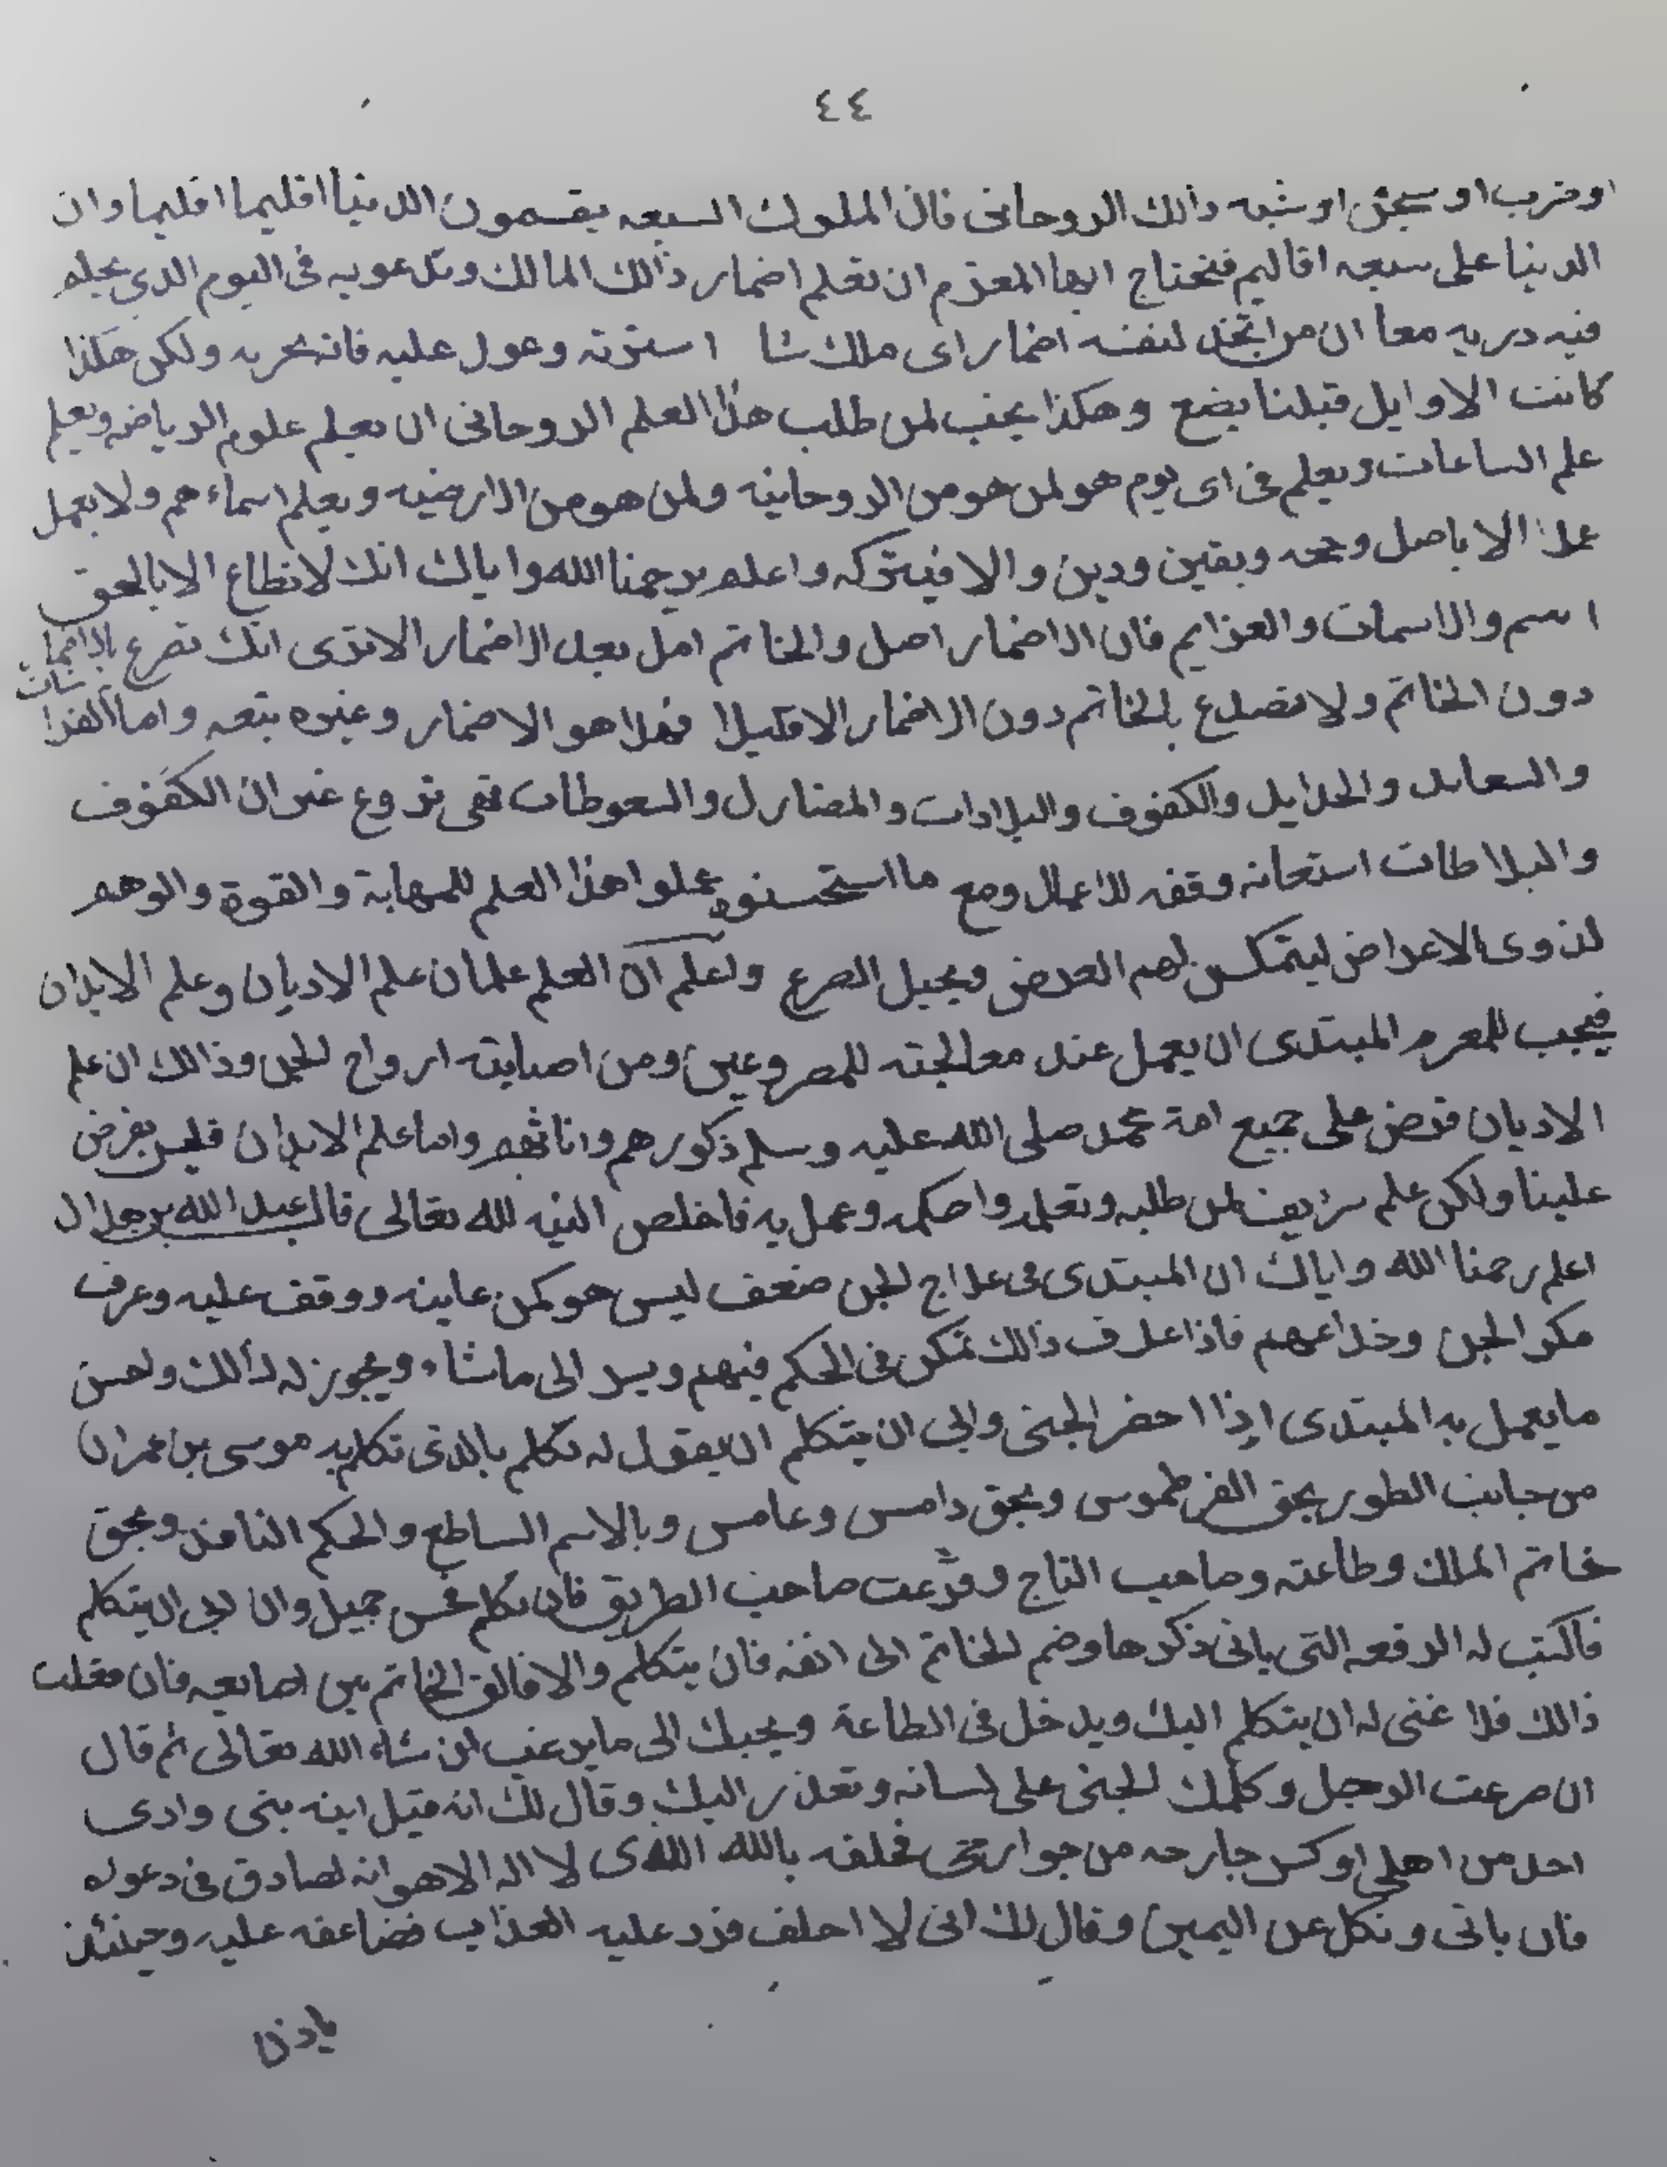 ٤٤
او ضرب او سجن او شبه ذالك الروحانى فان الملوك السبعه يقسمون الدنيا اقليما اقليما وان
الدنيا على سبعه اقاليم فتحتاج ايها المعزم ان تعلم اضمار ذالك المالك وتدعو به فى اليوم الذي يحكم
فيه دربه معا ان من اتخذ لنفسه اضمار اى ملك شا وعول عليه فانه يجر به ولكن هكذا
كانت الاوايل قبلنا يضع وهكذا يجب لمن طلب هذا العلم الروحانى ان يعلم علوم الرياضه ويعلم
علم الساعات ويعلم فى اى يوم هو لمن هو من الروحانيه ولمن هو من الارضيه ويعلم اسماءهم ولا يعمل
عملا الا باصل وحجه ويقين ودين والا فيتركه واعلم يرحمنا الله واياك انك لا تطاع الا بالحق
اسم والاسمات والعزايم فان الاضمار اصل والخاتم اصل بعد الاضمار الا ترى انك تصرع بالاضمار
دون الخاتم ولا تصدع بالخاتم دون الاضمار الا قليلا فهذا هو الاضمار وغيره يتعه واما الفرا
شات
والحدايل والكفوف والبلادات والمضارل والسعوطات فهى تروع غير ان الكفوف
والبلاطات استعانه وقفه للاعمال ومع ما استحسنوه عملوا هذا العلم للمهابة والقوة والوهم
لذوى الاعراض ليتمكن لهم العرض ويحيل الصرع ولعلم ان العلم علمان علم الاديان وعلم الابدان
فيجب للمعزم المبتدى ان يعمل عند معالجته للمصروعين ومن اصابته ارواح الجن وذالك ان علم
الاديان فرض على جميع امة محمد صلى الله عليه وسلم ذكورهم واناثهم واما علم الابدان فليس بفرض
علينا ولكن علم شريف لمن طلبه وتعلمه واحكمه وعمل به فاخلص النيه لله تعالى قال عبد الله بن هلال
اعلم رحمنا الله واياك ان المبتدى فى علاج الجن ضعف ليس هو كمن عاينه ووقف عليه وعرف
مكر الجن وخداعهم فاذا عرف ذالك تمكن فى الحكم فيهم ويسر الى ماشاء ويجوز له ذالك واحسن
مايعمل به المبتدى ايذا احضر الجنى وابى ان يتكلم ان يقول له تكلم بالذى تكلم به موسى بن عمران
من جانب الطور بحق الفرطموس وبحق دامس وعامس وبالاسم الساطع والحكم النافذ وبحق
خاتم الملك وطاعته وصاحب التاج وقرعت صاحب الطريق فان تكلم فحسن جميل وان ابى ان يتكلم
فاكتب له الرقعه التى ياتى ذكرها وضم الخاتم الى انفه فان يتكلم والا فالق الخاتم بين اصابعه فان فعلت
ذالك فلا غنى له ان يتكلم اليك ويدخل فى الطاعة ويجبك الى ما يرغب ان شاء الله تعالى ثم قال
ان صرعت الرجل وكلمك الجنى على لسانه وتعذر اليك وقال لك انه قتل ابنه بنى وادى
احد من اهلى او كسر جارحه من جوارحى فحلفه بالله الذى لا اله الا هو انه لصادق فى دعواه
فان ياتى ونكل عن اليمين وقال لك انى لا احلف فزد عليه العذاب فضاعفه عليه وحينئذ
ياذن